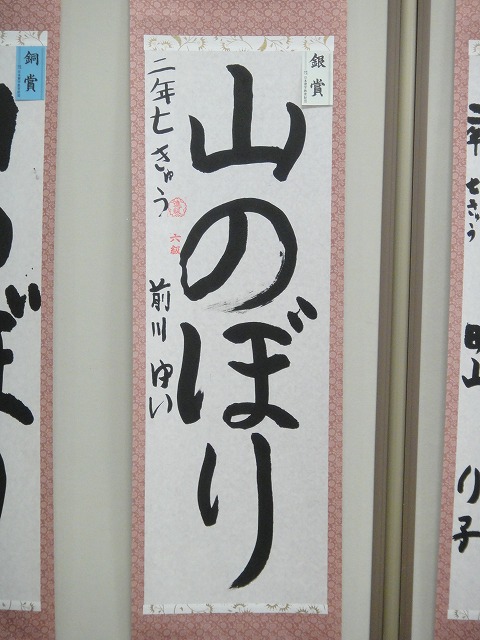 銀賞
山のぼり
二年七きゅう
六級
前川ゆい
銅賞
のぼり
二年七きゅう
り子